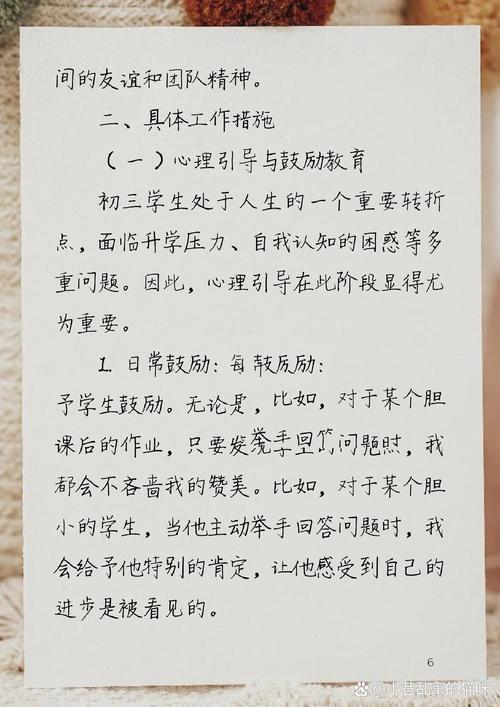 间的友谊和团队精神。
二、具体工作措施
（一）心理引导与鼓励教育
初三学生处于人生的一个重要转折
点，面临升学压力、自我认知的困惑等多
重问题。因此，心理引导在此阶段显得尤
为重要。
1. 日常鼓励：每 鼓励：
予学生鼓励。无论是，比如，对于某个胆
课后的作业，只要发 举手回 问题时，我
都会不吝啬我的赞美。比如，对于某个胆
小的学生，当他主动举手回答问题时，我
会给予他特别的肯定，让他感受到自己的
进步是被看见的。
6
小巷乱主的猫咪